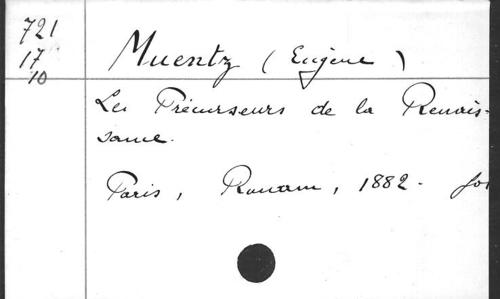 721
17
10
Muentz (Eugène)
Les Précurseurs de la Renais-
sance.
Paris, Rouam, 1882.